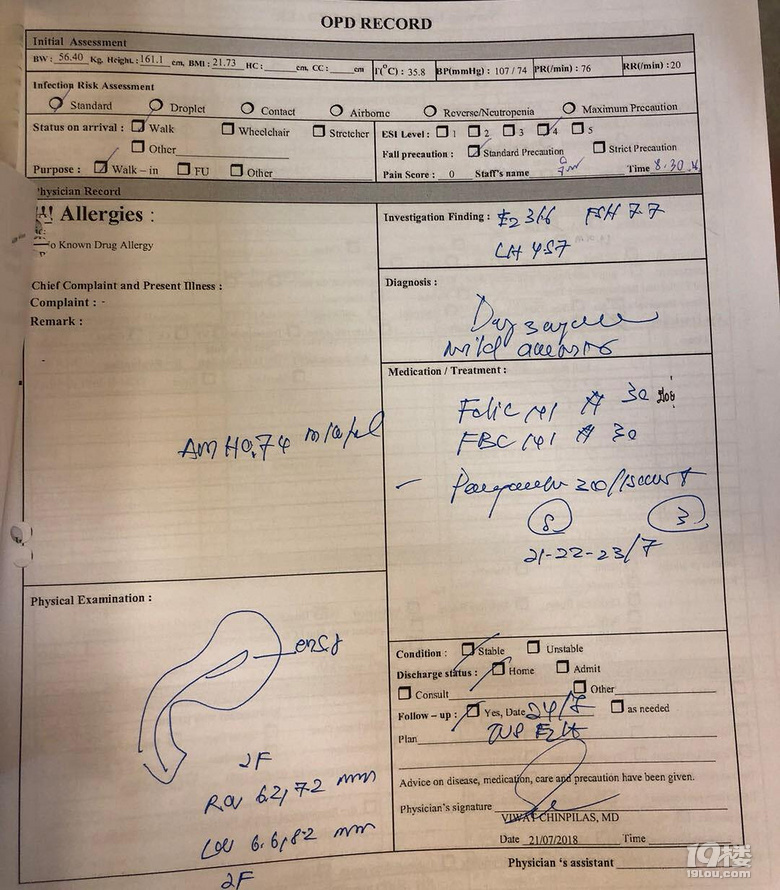 OPD RECORD
Initial Assessment
BW: 56.40 Kg. Height: 161.1 cm, BMI: 21.73 HC: cm, CC: cm T(°C): 35.8 BP(mmHg): 107/74 PR(/min): 76 RR(/min): 20
Infection Risk Assessment
Standard Droplet Contact Airborne Reverse/Neutropenia Maximum Precaution
Status on arrival: Walk Wheelchair Stretcher
Other
ESI Level: 1 2 3 4 5
Fall precaution: Standard Precaution Strict Precaution
Purpose: Walk-in FU Other
Pain Score: 0 Staff's name Time 8.30
Physician Record
Allergies :
No Known Drug Allergy
Chief Complaint and Present Illness :
Complaint : -
Remark :
AMH 0.74
Physical Examination :
2F
ROV 6.2, 7.2 mm
LOV 6.6, 8.2 mm
2F
Investigation Finding : E2 FSH 7.7
LH 4.57
Diagnosis :
Day 3
mild
Medication / Treatment :
Folic 1x1 # 30
FBC 1x1 # 30
8 3
21-22-23/7
Condition : Stable Unstable
Discharge status : Home Admit
Consult Other
Follow-up : Yes, Date 24/7 as needed
Plan E2 LH
Advice on disease, medication, care and precaution have been given.
Physician's signature
VIWAT CHINPILAS, MD
Date 21/07/2018 Time
Physician 's assistant
19楼
19lou.com